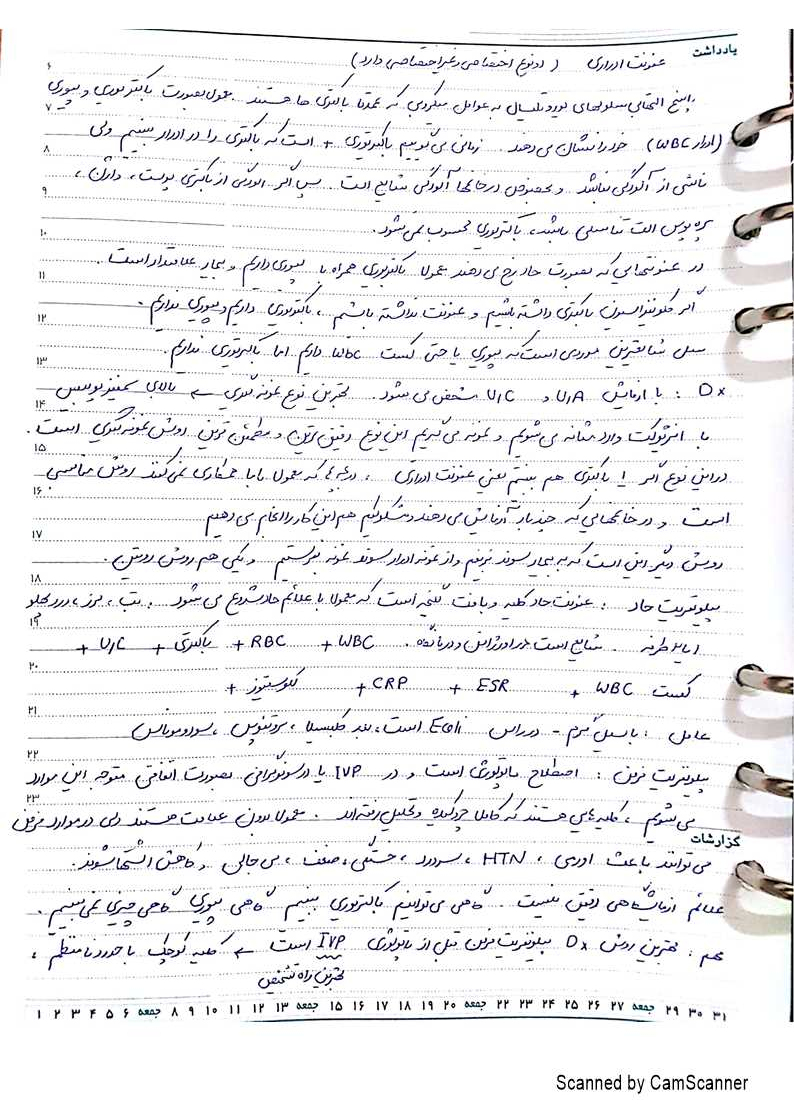 یادداشت
عفونت ادراری (دو نوع اختصاصی و غیر اختصاصی دارد)
۶
پاسخ التهابی سلولهای یوروتلیال به عوامل میکروبی که عمدتا باکتری ها هستند. معمولا بصورت باکتریوری و پیوری
۷
(ادرار WBC) خود را نشان می دهند. زمانی می گوییم باکتریوری + است که باکتری را در ادرار ببینیم ولی
۸
ناشی از آلودگی نباشد و بخصوص در خانمها آلودگی شایع است. پس اگر آلودگی از باکتری پوست، واژن،
۹
پره پوس آلت تناسلی باشد، باکتریوری محسوب نمی شود.
۱۰
در عفونتهایی که بصورت حاد رخ می دهند معمولا باکتریوری همراه با پیوری داریم و بیمار علامتدار است.
۱۱
اگر کلونیزاسیون باکتری داشته باشیم و عفونت نداشته باشیم، باکتریوری داریم و پیوری نداریم.
۱۲
سل شایعترین موردی است که پیوری یا حتی کست WBC داریم اما باکتریوری نداریم.
۱۳
Dx : با آزمایش U/A و U/C مشخص می شود. بهترین نوع نمونه گیری ← بالای سمفیزپوبیس
۱۴
با آنژیوکت وارد مثانه می شویم و نمونه می گیریم این نوع دقیق ترین و مطمئن ترین روش نمونه گیری است.
۱۵
در این نوع اگر ۱ باکتری هم ببینیم یعنی عفونت ادراری، در بچه ها که معمولا با ما همکاری نمی کنند روش مناسبی
۱۶
است و در خانمهایی که چند بار آزمایش می دهند و مشکوکیم هم این کار را انجام می دهیم
۱۷
روش دیگر این است که به بیمار سوند بزنیم و از نمونه ادرار سوند نمونه بفرستیم و یکی هم روش روتین.
۱۸
پیلونفریت حاد : عفونت حاد کلیه و بافت لگنچه است که معمولا با علائم حاد شروع می شود : تب، لرز، درد پهلو
۱۹
شایع است در اورژانس و درمانگاه. WBC + RBC + باکتری + U/C +
۲۰
کست WBC + ESR + CRP + لکوسیتوز +
۲۱
عامل : باسیل گرم - در راس E.coli است، بعد کلبسیلا، پروتئوس، سودوموناس
۲۲
پیلونفریت مزمن : اصطلاح پاتولوژی است و در IVP یا در سونوگرافی بصورت اتفاقی متوجه این موارد
۲۳
می شویم، کلیه هایی هستند که کاملا چروکیده و تحلیل رفته اند. معمولا بدون علامت هستند ولی در موارد مزمن
گزارشات
می توانند باعث اورمی، HTN، سردرد، خستگی، ضعف، بی حالی و کاهش اشتها شوند.
علائم آزمایشگاهی دقیق نیست. گاهی می توانیم باکتریوری ببینیم گاهی پیوری گاهی چیزی نمی بینیم.
مهم : بهترین روش Dx پیلونفریت مزمن قبل از پاتولوژی IVP است ← کلیه کوچک با حدود نامنظم،
بهترین راه تشخیص
۱ ۲ ۳ ۴ ۵ ۶ جمعه ۸ ۹ ۱۰ ۱۱ ۱۲ ۱۳ جمعه ۱۵ ۱۶ ۱۷ ۱۸ ۱۹ ۲۰ جمعه ۲۲ ۲۳ ۲۴ ۲۵ ۲۶ ۲۷ جمعه ۲۹ ۳۰ ۳۱
Scanned by CamScanner